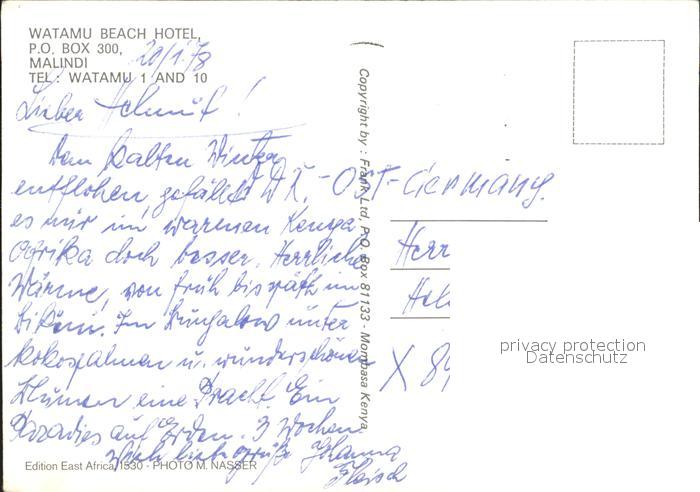 WATAMU BEACH HOTEL,
P.O. BOX 300,
MALINDI
TEL: WATAMU 1 AND 10
20/1.78
Lieber Helmut!
Dem kalten Winter
entflohen, gefällt
es mir im warmen Kenya
Afrika doch besser. Herrliche
Wärme, von früh bis spät im
Bikini. Im Bungalow unter
Kokospalmen u. wunderschönen
Blumen eine Pracht. Ein
Paradies auf Erden. 3 Wochen
liebe Grüße Johanna
Edition East Africa 1530 - PHOTO M. NASSER
Copyright by: Frank Ltd. P.O. Box 81133 - Mombasa Kenya
OST-Germany.
Herr
Hel
X 89
privacy protection
Datenschutz